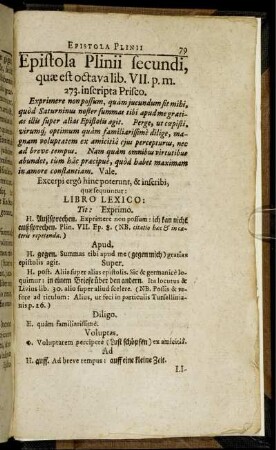 EPISTOLA PLINII 79
Epistola Plinii secundi,
quæ est octava lib. VII. p. m.
273. inscripta Prisco.
Exprimere non possum, quàm jucundum sit mihi,
quòd Saturninus noster summas tibi apud me grati-
as aliis super alias Epistolis agit. Perge, ut cœpisti,
virumq; optimum quàm familiarissimè dilige, ma-
gnam voluptatem ex amicitiâ ejus percepturus, nec
ad breve tempus. Nam quùm omnibus virtutibus
abundet, tùm hâc præcipuè, quòd habet maximam
in amore constantiam. Vale.
Excerpi ergò hinc poterunt, & inscribi,
quæ sequuntur:
LIBRO LEXICO:
Tit: Exprimo.
H. Außsprechen. Exprimere non possum: ich kan nicht
außsprechen. Plin. VII. Ep. 8. (NB. citatio hæc & in cæ-
teris repetenda.)
Apud.
H. gegen. Summas tibi apud me (gegen mich) gratias
epistolis agit. Super.
H. post. Aliis super alias epistolis. Sic & germanicè lo-
quimur: in einem Briefe über den andern. Ita locutus &
Livius lib. 30. alio super aliud scelere. (NB. Possis & re-
ferre ad titulum: Alius, ut feci in particulis Tursellinia-
nis p. 26.)
Diligo.
H. quàm familiarissimè.
Voluptas.
⊙. Voluptatem percipere (Lust schöpfen) ex amicitiâ.
Ad
H. auff. Ad breve tempus: auff eine kleine Zeit.
LI-